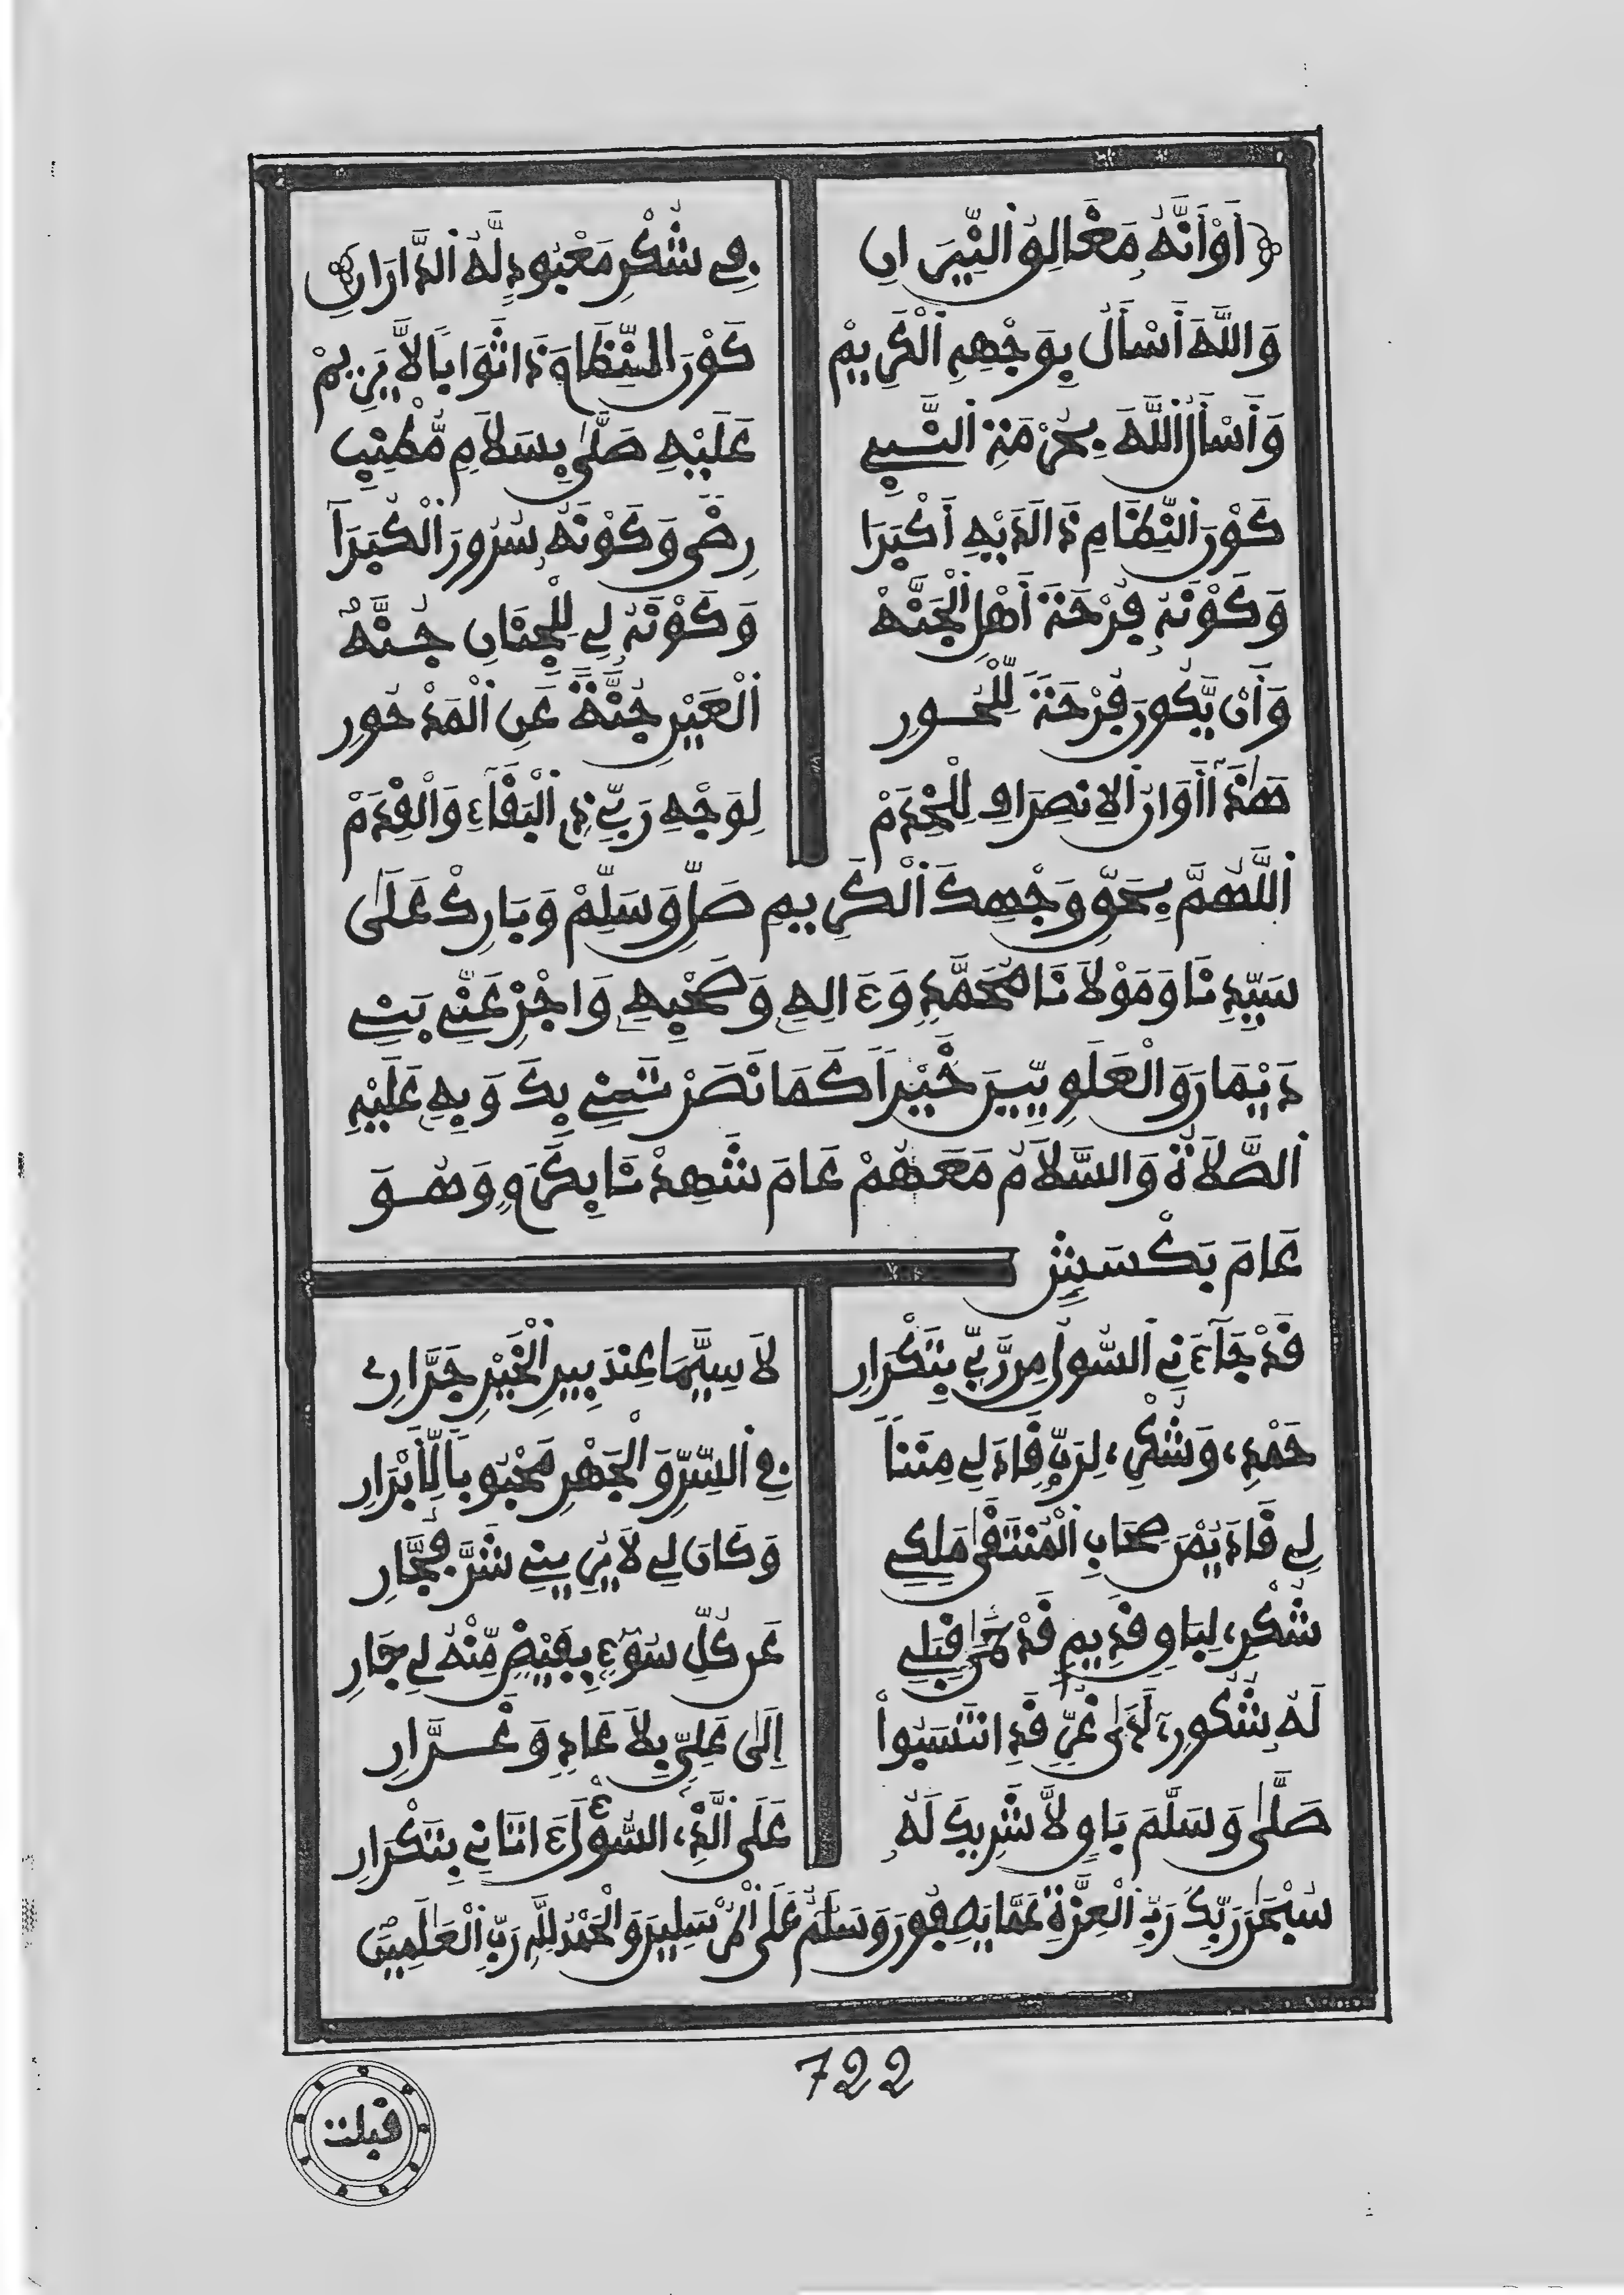 أَوْ أَنَّهُ مَغَالِقُ النِّيرَانِ فِي شُكْرِ مَعْبُودٍ لَهُ الدَّارَانِ
وَاللَّهَ أَسْأَلُ بِوَجْهِهِ الْكَرِيمْ كَوْنَ النِّظَامِ ذَا ثَوَابٍ لَا يَرِيمْ
وَأَسْأَلُ اللَّهَ بِحُرْمَةِ النَّبِي عَلَيْهِ صَلَّى بِسَلَامٍ مُّطْنِبِ
كَوْنَ النِّظَامِ ذَا لَدَيْهِ أَكْبَرَا رِضًى وَكَوْنَهُ سُرُورَ الْكُبَرَا
وَكَوْنَهُ فُرْحَةَ أَهْلِ الْجَنَّهْ وَكَوْنَهُ لِي لِلْجِنَانِ جُنَّهْ
وَأَنْ يَّكُونَ فُرْحَةً لِّلْحُورِ الْعِينِ جُنَّةً عَنِ الْمَدْحُورِ
هَٰذَا أَوَانُ الِانصِرَافِ لِلْخِدَمْ لِوَجْهِ رَبِّي ذِي الْبَقَاءِ وَالْقِدَمْ
اللَّهُمَّ بِحَقِّ وَجْهِكَ الْكَرِيمِ صَلِّ وَسَلِّمْ وَبَارِكْ عَلَى
سَيِّدِنَا وَمَوْلَانَا مُحَمَّدٍ وَءَالِهِ وَصَحْبِهِ وَاجْزِ عَنِّي بَنِي
دَيْمَانَ وَالْعَلَوِيِّينَ خَيْراً كَمَا نَصَرْتَنِي بِكَ وَبِهِ عَلَيْهِ
الصَّلَاةُ وَالسَّلَامُ مَعَهُمْ عَامَ شَهِدْنَا بِكَرَمٍ وَهُوَ
عَامَ بَكْسَشٍ
قَدْ جَاءَنِي السُّولُ مِن رَّبِّي بِتَكْرَارِ لَا سِيَّمَا عِندَ بِيرِ الْخَيْرِ جَرَّارِ
حَمْدِي وَشُكْرِي لِرَبٍّ قَادَ لِي مِنَناً فِي السِّرِّ وَالْجَهْرِ مَحْبُوباً لِّأَبْرَارِ
لِي قَادَ يُمْنَ صِحَابِ الْمُنْتَقَى مَلِكِي وَكَانَ لِي لَا يُرِينِي شَرَّ فُجَّارِ
شُكْرِي لِبَاقٍ قَدِيمٍ قَدْ حَمَى قِبَلِي عَن كُلِّ سُوءٍ بِفَيْضٍ مِّنْهُ لِي جَارِ
لَهُ شُكُورِي لَدَى غُرٍّ قَدِ انْتَسَبُوا إِلَى عَلِيٍّ بِلَا عَادٍ وَغَرَّارِ
صَلَّى وَسَلَّمَ بَاقٍ لَا شَرِيكَ لَهُ عَلَى الَّذِي السُّؤْلَ ءَاتَانِي بِتَكْرَارِ
سُبْحَٰنَ رَبِّكَ رَبِّ الْعِزَّةِ عَمَّا يَصِفُونَ وَسَلَٰمٌ عَلَى الْمُرْسَلِينَ وَالْحَمْدُ لِلَّهِ رَبِّ الْعَٰلَمِينَ
722
قبلت